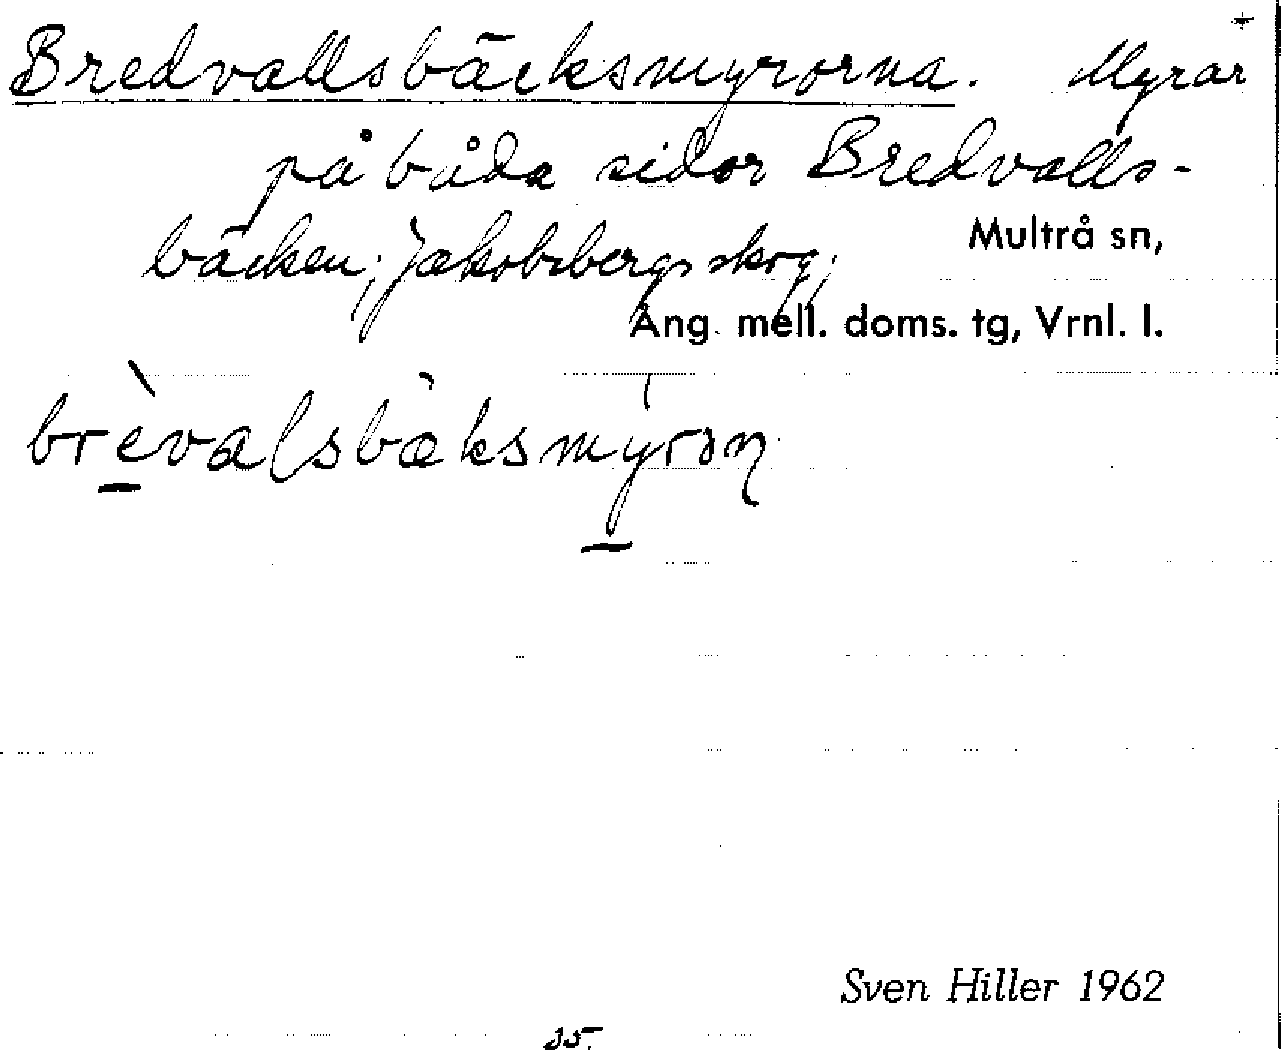 Bredvallsbäcksmyrorna. Myrar
på båda sidor Bredvalls-
bäcken; Jakobsbergs skog;
Multrå sn,
Ång. mell. doms. tg, Vrnl. l.
brèvalsbäksmyron
Sven Hiller 1962